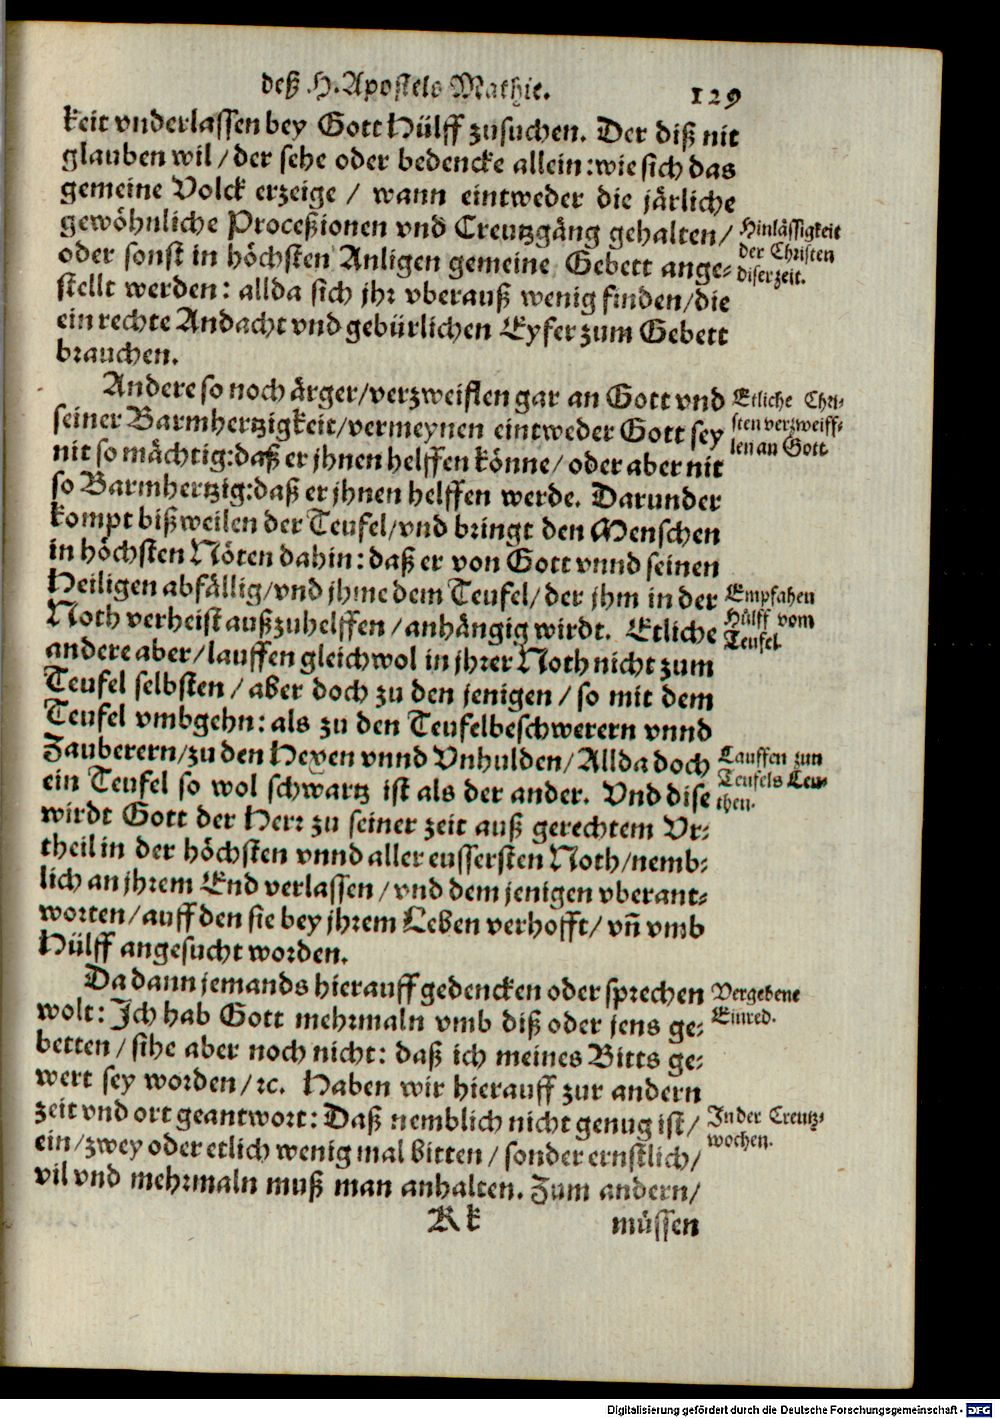 deß H. Apostels Mathie. 129
keit vnderlassen bey Gott Hülff zusuchen. Der diß nit
glauben wil / der sehe oder bedencke allein: wie sich das
gemeine Volck erzeige / wann eintweder die järliche
gewöhnliche Proceßionen vnd Creutzgäng gehalten /
oder sonst in höchsten Anligen gemeine Gebett ange-
stellt werden: allda sich jhr vberauß wenig finden / die
ein rechte Andacht vnd gebürlichen Eyfer zum Gebett
brauchen.
Hinlässigkeit
der Christen
diser zeit.
Andere so noch ärger / verzweiflen gar an Gott vnd
seiner Barmhertzigkeit / vermeynen eintweder Gott sey
nit so mächtig: daß er jhnen helffen könne / oder aber nit
so Barmhertzig: daß er jhnen helffen werde. Darunder
kompt bißweilen der Teufel / vnd bringt den Menschen
in höchsten Nöten dahin: daß er von Gott vnnd seinen
Heiligen abfällig / vnd jhme dem Teufel / der jhm in der
Noth verheist außzuhelffen / anhängig wirdt. Etliche
andere aber / lauffen gleichwol in jhrer Noth nicht zum
Teufel selbsten / aber doch zu den jenigen / so mit dem
Teufel vmbgehn: als zu den Teufelbeschwerern vnnd
Zauberern / zu den Hexen vnnd Vnhulden / Allda doch
ein Teufel so wol schwartz ist als der ander. Vnd dise
wirdt Gott der Herr zu seiner zeit auß gerechtem Vr-
theil in der höchsten vnnd aller eussersten Noth / nemb-
lich an jhrem End verlassen / vnd dem jenigen vberant-
worten / auff den sie bey jhrem Leben verhofft / vñ vmb
Hülff angesucht worden.
Etliche Chri-
sten verzweiff-
len an Gott
Empfahen
Hülff vom
Teufel.
Lauffen zun
Teufels Leu-
then.
Da dann jemands hierauff gedencken oder sprechen
wolt: Ich hab Gott mehrmaln vmb diß oder jens ge-
betten / sihe aber noch nicht: daß ich meines Bitts ge-
wert sey worden / ꝛc. Haben wir hierauff zur andern
zeit vnd ort geantwort: Daß nemblich nicht genug ist /
ein / zwey oder etlich wenig mal bitten / sonder ernstlich /
vil vnd mehrmaln muß man anhalten. Zum andern /
Vergebene
Einred.
In der Creutz-
wochen.
Kk müssen
Digitalisierung gefördert durch die Deutsche Forschungsgemeinschaft - DFG